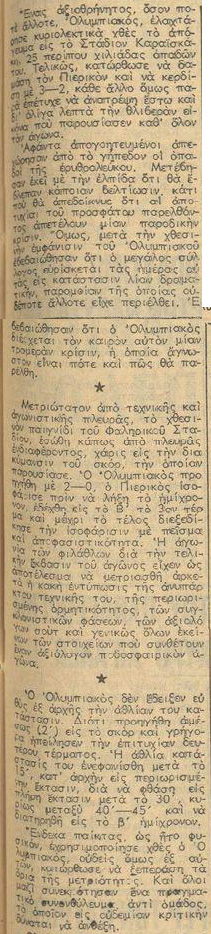 Ἕνας ἀξιοθρήνητος, ὅσον πο-
τὲ ἄλλοτε, Ὀλυμπιακός, ἐλαχτά-
ρησε κυριολεκτικὰ χθὲς τὸ ἀπό-
γευμα εἰς τὸ Στάδιον Καραϊσκά-
κη, 25 περίπου χιλιάδας ὀπαδῶν
του. Τελικῶς, κατώρθωσε νὰ
τὸν Πιερικὸν καὶ νὰ κερδί-
ση μὲ 3—2, κάθε ἄλλο ὅμως πα-
ρὰ ἐπέτυχε νὰ ἀνατρέψη ἔστω καὶ
δι' ὀλίγα λεπτὰ τὴν θλιβερὰν εἰ-
κόνα ποὺ παρουσίασεν καθ' ὅλον
τὸν ἀγῶνα.
Ἄφαντα ἀπογοητευμένοι ἀπε-
χώρησαν ἀπὸ τὸ γήπεδον οἱ ὀπα-
δοὶ τῆς ἐρυθρολεύκου. Μετέβη-
σαν ἐκεῖ μὲ τὴν ἐλπίδα ὅτι θὰ ἔ-
βλεπαν κάποιαν βελτίωσιν, κάτι
ποὺ θὰ ἀπεδείκνυε ὅτι αἱ ἀπο-
τυχίαι τοῦ προσφάτου παρελθόν-
τος ἀπετέλουν μίαν παροδικὴν
κρίσιν. Ὅμως, μετὰ τὴν χθεσι-
νὴν ἐμφάνισιν τοῦ Ὀλυμπιακοῦ
ἐβεβαιώθησαν ὅτι ὁ μεγάλος σύλ-
λογος εὑρίσκεται τὰς ἡμέρας αὐ-
τὰς εἰς κατάστασιν λίαν δραμα-
τικήν, παρομοίαν τῆς ὁποίας οὐ-
δέποτε ἄλλοτε εἶχε περιέλθει. Ἐ-
βεβαιώθησαν ὅτι ὁ Ὀλυμπιακὸς
διέρχεται τὸν καιρὸν αὐτὸν μίαν
τρομερὰν κρίσιν, ἡ ὁποία ἄγνω-
στον εἶναι πότε καὶ πῶς θὰ πα-
ρέλθη.
★
Μετριώτατον ἀπὸ τεχνικῆς καὶ
ἀγωνιστικῆς πλευρᾶς, τὸ χθεσι-
νὸν παιγνίδι τοῦ Φαληρικοῦ Στα-
δίου, ἐσώθη κάπως ἀπὸ πλευρᾶς
ἐνδιαφέροντος, χάρις εἰς τὴν δια
κύμανσιν τοῦ σκόρ, τὴν ὁποίαν
παρουσίασε. Ὁ Ὀλυμπιακὸς προ
ηγήθη μὲ 2—0, ὁ Πιερικὸς ἰσο-
φάρισε πρὶν νὰ λήξη τὸ ἡμίχρο-
νον, ἐδέχθη εἰς τὸ Β' τὸ 3ον τέρμα
καὶ μέχρι τὸ τέλος διεξεδί-
κησε τὴν ἰσοφάρισιν μὲ πεῖσμα
καὶ ἀποφασιστικότητα. Ἡ ἀγω-
νία τῶν φιλάθλων διὰ τὴν τελι-
κὴν ἔκβασιν τοῦ ἀγῶνος εἶχεν ὡς
ἀποτέλεσμα νὰ μετριασθῆ ἀρκε-
τὰ ἡ κακὴ ἐντύπωσις τῆς ἀνυπάρ-
κτου τεχνικῆς του, τῆς περιωρι-
σμένης ὁρμητικότητος, τῶν συγ-
κλονιστικῶν φάσεων, τῶν ἀξιολό
γων σοὺτ καὶ γενικῶς ὅλων ἐκεί-
νων τῶν στοιχείων ποὺ συνθέτουν
ἕναν ἀξιόλογον ποδοσφαιρικὸν ἀ-
γῶνα.
★
Ὁ Ὀλυμπιακὸς δὲν ἔδειξεν εὐ
θὺς ἐξ ἀρχῆς τὴν ἀθλίαν του κα-
τάστασιν. Διότι προηγήθη ἀμέ-
σως (2') εἰς τὸ σκὸρ καὶ γρήγο-
ρα ἠπείλησεν τὴν ἐπιτυχίαν δευ-
τέρου τέρματος. Ἡ ἀθλία κατά-
στασίς του ἐνεφανίσθη μετὰ τὸ
15', κατ' ἀρχὴν εἰς περιωρισμέ-
νην ἔκτασιν, διὰ νὰ φθάση εἰς
πλήρη ἔκτασιν μετὰ τὸ 30', κυ-
ρίως μεταξὺ 40'—45' καὶ νὰ
διατηρηθῆ εἰς τὸ Β' ἡμίχρονον.
Ἕνδεκα παίκτας, ὡς ἦτο φυ-
σικόν, ἐχρησιμοποίησε χθὲς ὁ Ὀ
λυμπιακός, οὐδεὶς ὅμως ἐξ αὐ-
τῶν, κατώρθωσε νὰ ξεπεράση τὰ
ὅρια τῆς μετριότητος. Καὶ ὅλοι
μαζὶ συνεκρότησαν ἕνα πραγμα-
τικὸ συνονθύλευμα, ἀντὶ ὁμάδος,
τὸ ὁποῖον εἰς οὐδεμίαν κριτικὴν
δύναται νὰ ἀνθέξη.